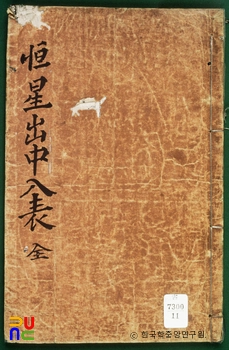 恒星出中入表 全
7300
11
한국학중앙연구원